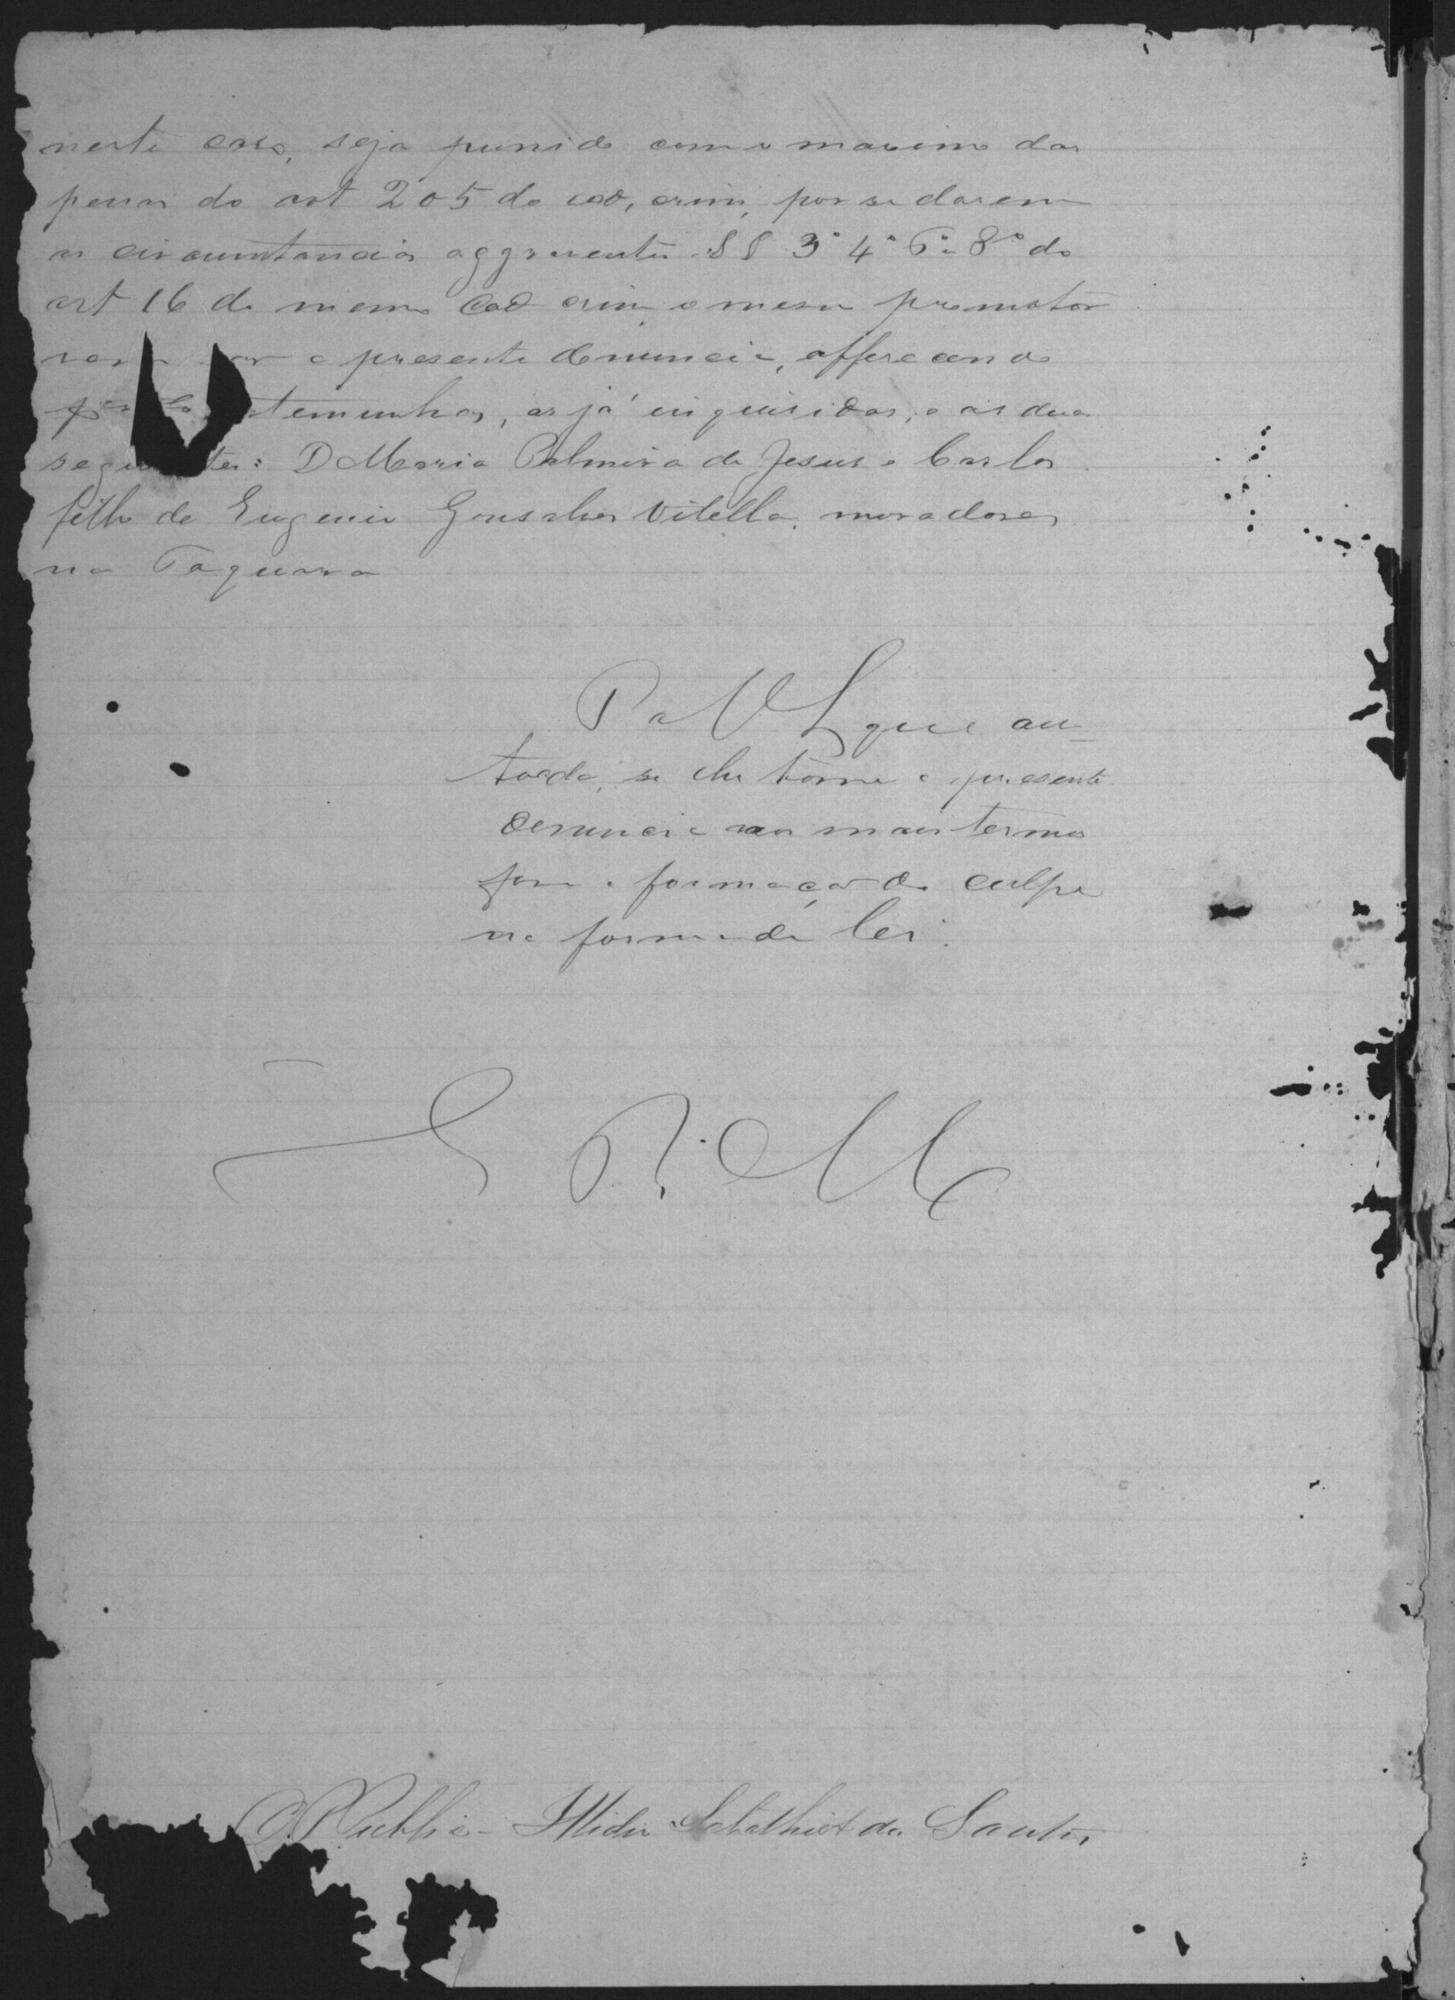 neste caso, seja punido com o maximo das
penas do art 205 do cod, crim, por se darem
as circumstancias aggravantes §§ 3º 4º 6º e 8º do
art 16 do mesmo Cod crim o mesmo promotor
vem dar a presente denuncia, offerecendo
temunhas, as já inquiridas, e as duas
seguintes: D Maria Palmira de Jesus e Carlos
filho de Eugenio Gonsalves Vilella, moradores
na Taquara
P a V S que au-
toada, se lhe tome a presente
denuncia nos mais termos
para a formação da culpa
na forma da lei.
E R. M
O P. Publico Santos